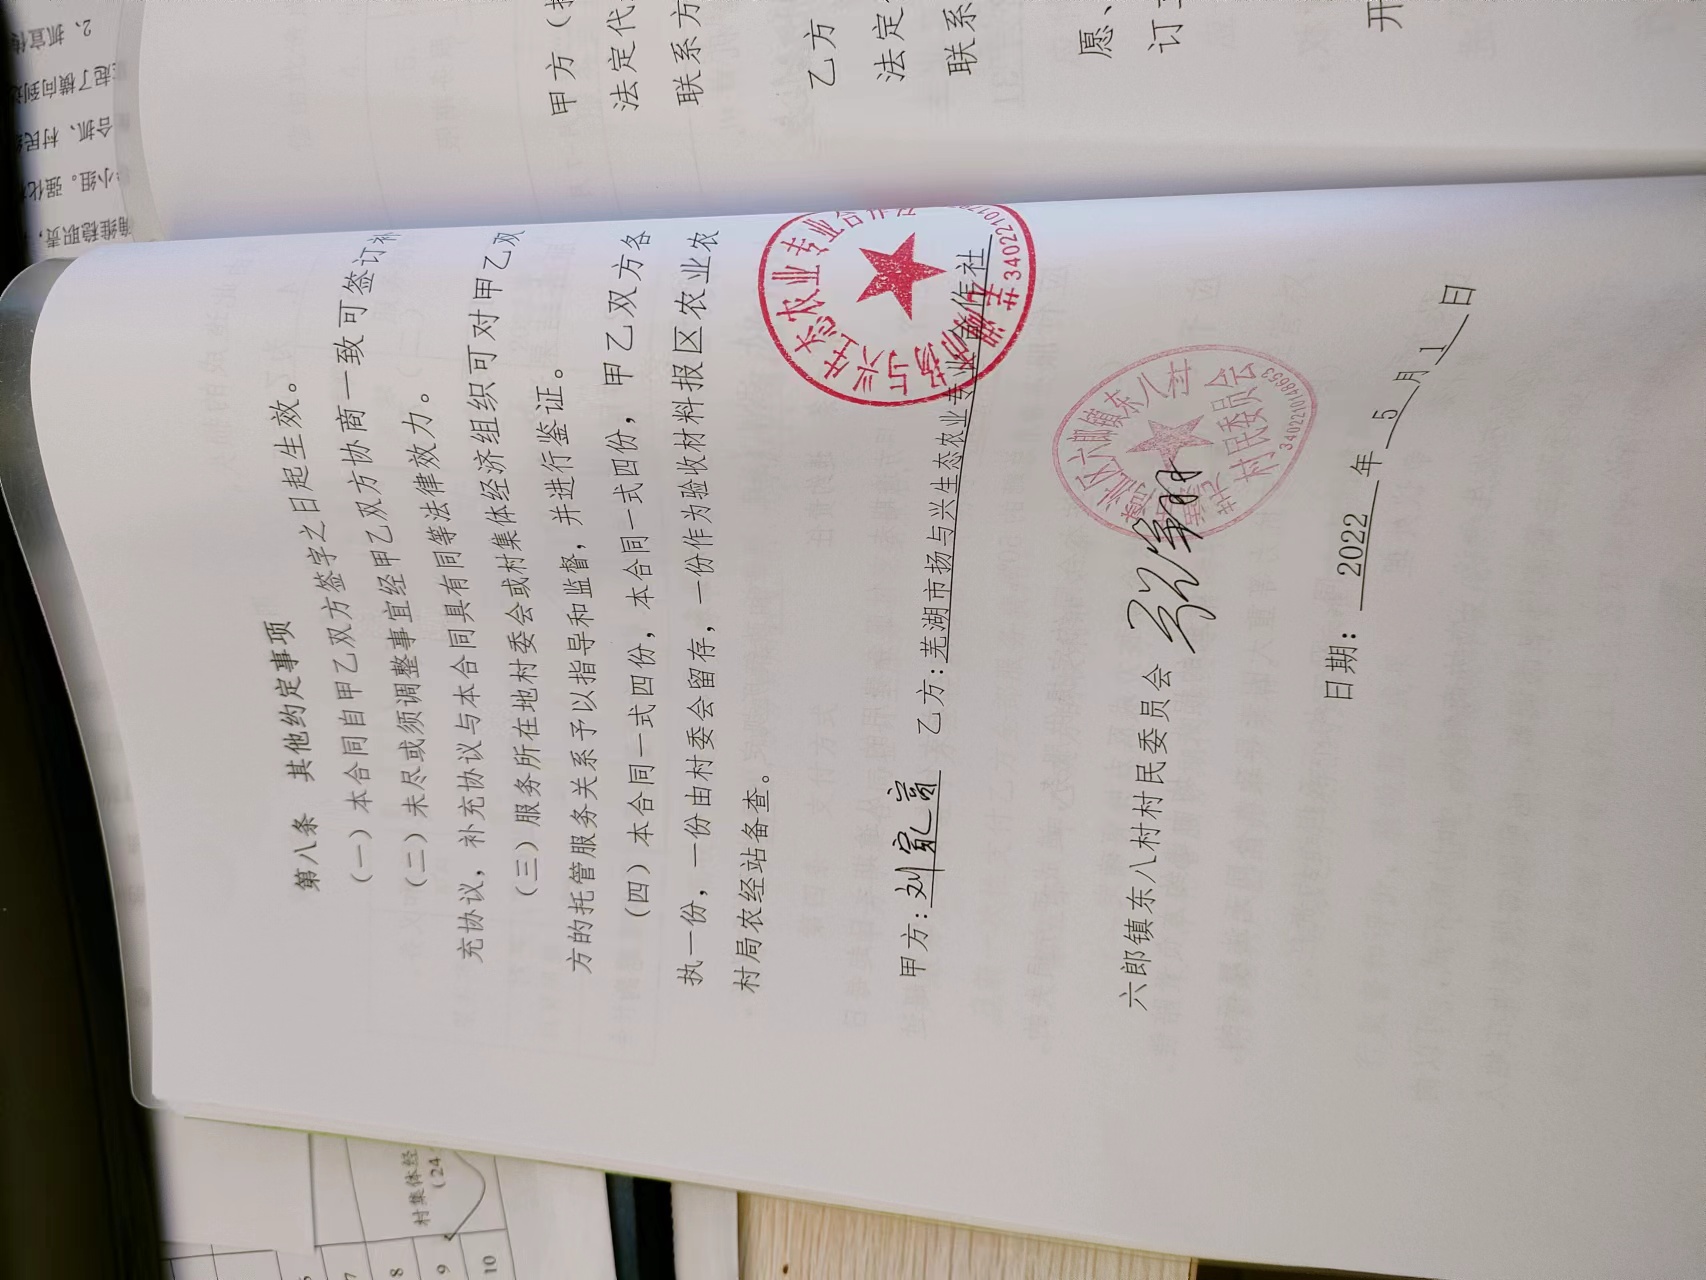 第八条 其他约定事项
（一）本合同自甲乙双方签字之日起生效。
（二）未尽或须调整事宜经甲乙双方协商一致可签订补
充协议，补充协议与本合同具有同等法律效力。
（三）服务所在地村委会或村集体经济组织可对甲乙双
方的托管服务关系予以指导和监督，并进行鉴证。
（四）本合同一式四份，本合同一式四份，甲乙双方各
执一份，一份由村委会留存，一份作为验收材料报区农业农
村局农经站备查。
甲方：刘家高 乙方：芜湖市扬与兴生态农业专业合作社
六郎镇东八村村民委员会
日期：2022年5月1日
芜湖市扬与兴生态农业专业合作社
湾沚区六郎镇东八村
村民委员会
3402210148653
甲方（
法定代
联系方
乙方
法定
联系
愿、
订
开
2、抓宣传
起了横向到边
合抓、村民
小组。强化
维稳职责，
村集体经
（24
7
8
9
10